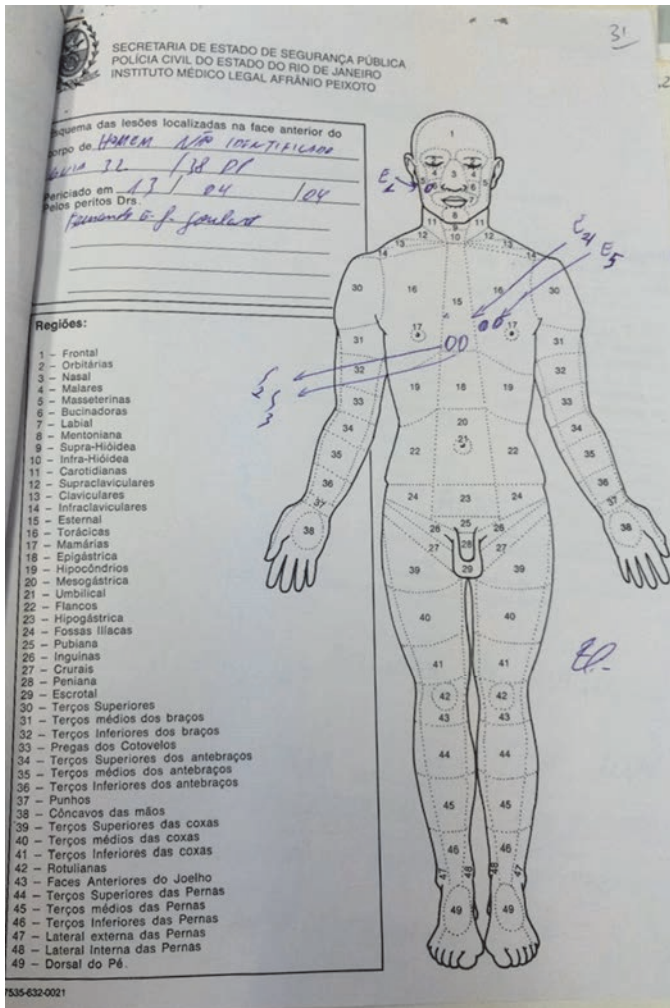 31
SECRETARIA DE ESTADO DE SEGURANÇA PÚBLICA
POLÍCIA CIVIL DO ESTADO DO RIO DE JANEIRO
INSTITUTO MÉDICO LEGAL AFRÂNIO PEIXOTO
Esquema das lesões localizadas na face anterior do
corpo de HOMEM NÃO IDENTIFICADO
GUIA 32 /38 DP
Periciado em 13 / 04 /04
Pelos peritos Drs.
Fernando Goulart
Regiões:
1 – Frontal
2 – Orbitárias
3 – Nasal
4 – Malares
5 – Masseterinas
6 – Bucinadoras
7 – Labial
8 – Mentoniana
9 – Supra-Hióidea
10 – Infra-Hióidea
11 – Carotidianas
12 – Supraclaviculares
13 – Claviculares
14 – Infraclaviculares
15 – Esternal
16 – Torácicas
17 – Mamárias
18 – Epigástrica
19 – Hipocôndrios
20 – Mesogástrica
21 – Umbilical
22 – Flancos
23 – Hipogástrica
24 – Fossas Ilíacas
25 – Pubiana
26 – Inguinas
27 – Crurais
28 – Peniana
29 – Escrotal
30 – Terços Superiores
31 – Terços médios dos braços
32 – Terços Inferiores dos braços
33 – Pregas dos Cotovelos
34 – Terços Superiores dos antebraços
35 – Terços médios dos antebraços
36 – Terços Inferiores dos antebraços
37 – Punhos
38 – Côncavos das mãos
39 – Terços Superiores das coxas
40 – Terços médios das coxas
41 – Terços Inferiores das coxas
42 – Rotulianas
43 – Faces Anteriores do Joelho
44 – Terços Superiores das Pernas
45 – Terços médios das Pernas
46 – Terços Inferiores das Pernas
47 – Lateral externa das Pernas
48 – Lateral Interna das Pernas
49 – Dorsal do Pé.
7535-632-0021
1
4 3 4
5 6 5
7
8
E1
11 9 11
12 10 12
13 13
14 14
E4
E5
30 16 15 16 30
17 17
31 31
32 32
S2
S3
19 18 19
33 33
20
34 21 34
35 22 22 35
36 36
24 23 24
37 37
38 25 38
26 26
27 28 27
29
39 39
40 40
41 41
42 42
43 43
44 44
45 45
46 46
47 48 48 47
49 49